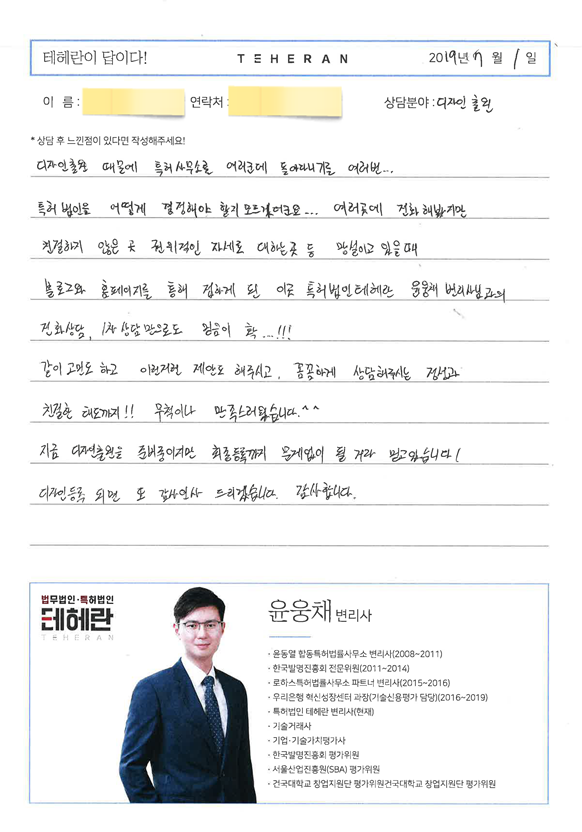 테헤란이 답이다!
TEHERAN
2019년 7월 1일
이 름 :
연락처 :
상담분야 : 디자인 출원
* 상담 후 느낀점이 있다면 작성해주세요!
디자인출원 때문에 특허사무소를 여러군데 돌아다니기를 여러번...
특허 법인을 어떻게 결정해야 할지 모르겠더군요... 여러곳에 전화해봤지만
친절하지 않은 곳 권위적인 자세로 대하는곳 등 망설이고 있을때
블로그와 홈페이지를 통해 접하게 된 이곳 특허법인테헤란 윤웅채 변리사님과의
전화상담, 1차 상담만으로도 믿음이 확...!!!
같이 고민도 하고 이런저런 제안도 해주시고, 꼼꼼하게 상담해주시는 정성과
친절한 태도까지!! 무척이나 만족스러웠습니다.^^
지금 디자인출원을 준비중이지만 최종등록까지 문제없이 될 거라 믿고있습니다!
디자인등록 되면 또 감사인사 드리겠습니다. 감사합니다.
법무법인·특허법인
테헤란
TEHERAN
윤웅채 변리사
· 윤동열 합동특허법률사무소 변리사(2008~2011)
· 한국발명진흥회 전문위원(2011~2014)
· 로하스특허법률사무소 파트너 변리사(2015~2016)
· 우리은행 혁신성장센터 과장(기술신용평가 담당)(2016~2019)
· 특허법인 테헤란 변리사(현재)
· 기술거래사
· 기업·기술가치평가사
· 한국발명진흥회 평가위원
· 서울산업진흥원(SBA) 평가위원
· 건국대학교 창업지원단 평가위원건국대학교 창업지원단 평가위원